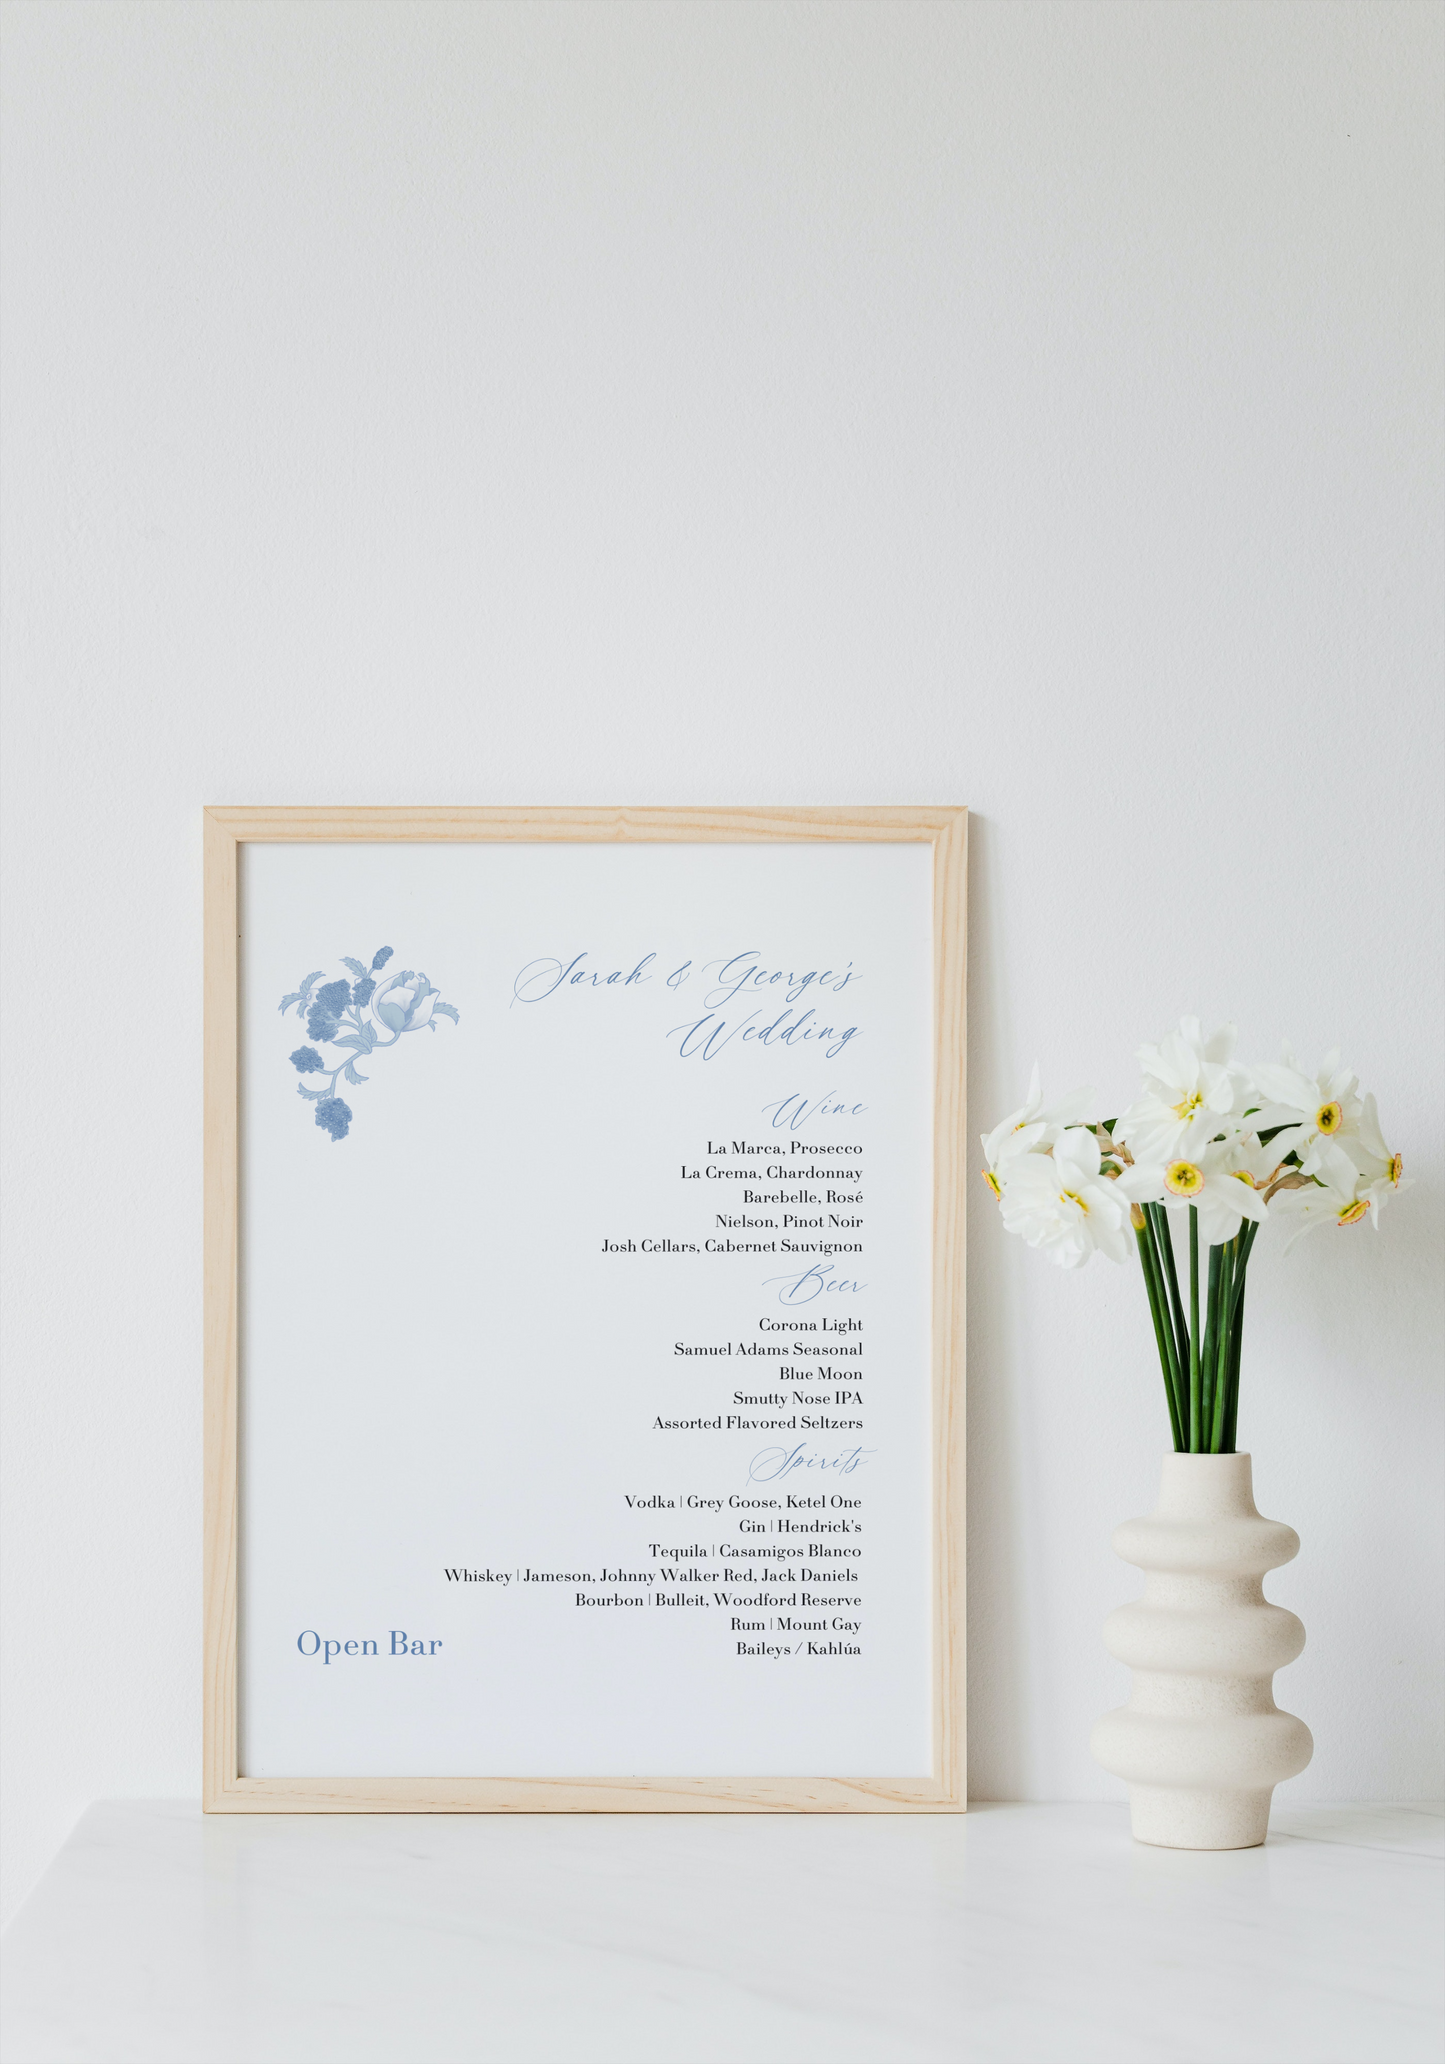 Sarah & George's
Wedding
Wine
La Marca, Prosecco
La Crema, Chardonnay
Barebelle, Rosé
Nielson, Pinot Noir
Josh Cellars, Cabernet Sauvignon
Beer
Corona Light
Samuel Adams Seasonal
Blue Moon
Smutty Nose IPA
Assorted Flavored Seltzers
Spirits
Vodka | Grey Goose, Ketel One
Gin | Hendrick's
Tequila | Casamigos Blanco
Whiskey | Jameson, Johnny Walker Red, Jack Daniels
Bourbon | Bulleit, Woodford Reserve
Rum | Mount Gay
Baileys / Kahlúa
Open Bar